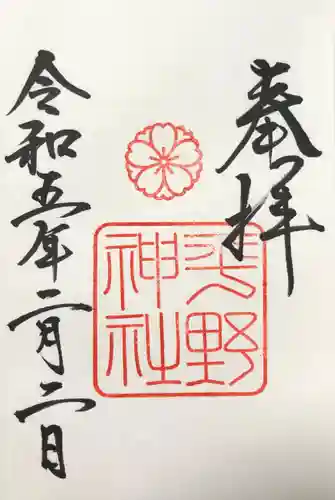 奉拝
野
神社
令和五年二月二日